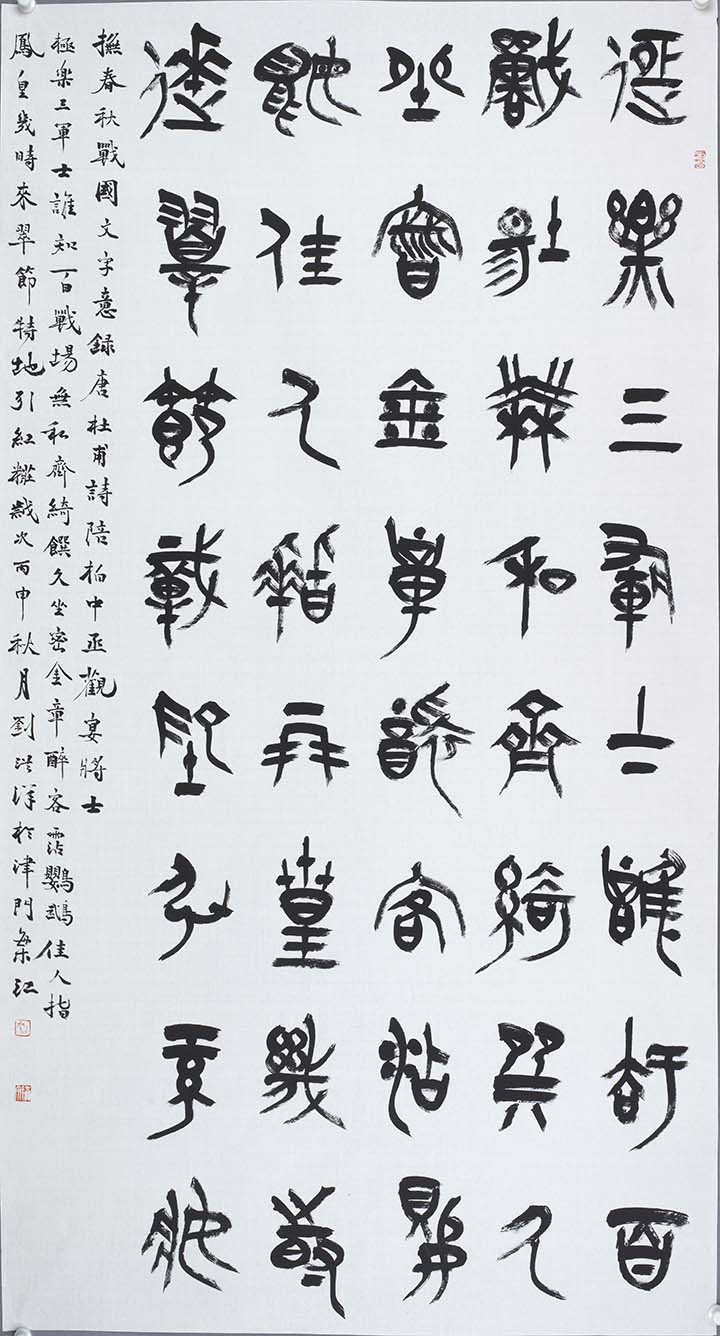 極樂三軍士誰知百
戰場無私齊綺饌久
坐密金章醉客沾鸚
鵡佳人指鳳皇幾時
來翠節特地引紅妝
撫春秋戰國文字意録唐杜甫詩陪柏中丞觀宴將士
極樂三軍士誰知百戰場無私齊綺饌久坐密金章醉客霑鸚鵡佳人指
鳳皇幾時來翠節特地引紅糚歲次丙申秋月劉洪洋於津門